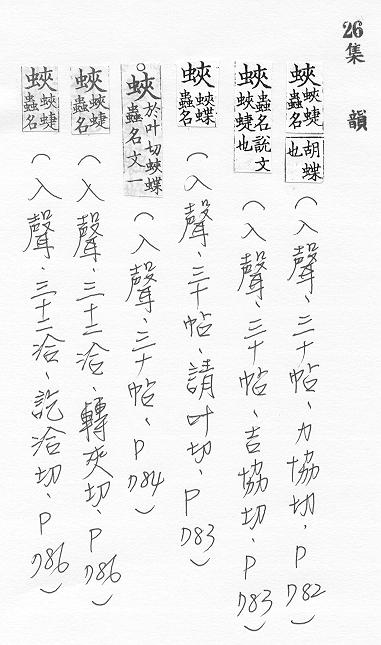 26集韻
蛺 蛺蜨蟲名 胡蝶也（入聲、三十帖、力協切、P782）
蛺 蟲名說文蛺蜨也（入聲、三十帖、吉協切、P783）
蛺 蛺蝶蟲名（入聲、三十帖、請叶切、P783）
○蛺 於叶切蛺蝶蟲名文一（入聲、三十帖、P784）
蛺 蛺蜨蟲名（入聲、三十二洽、轉夾切、P786）
蛺 蛺蜨蟲名（入聲、三十二洽、訖洽切、P786）